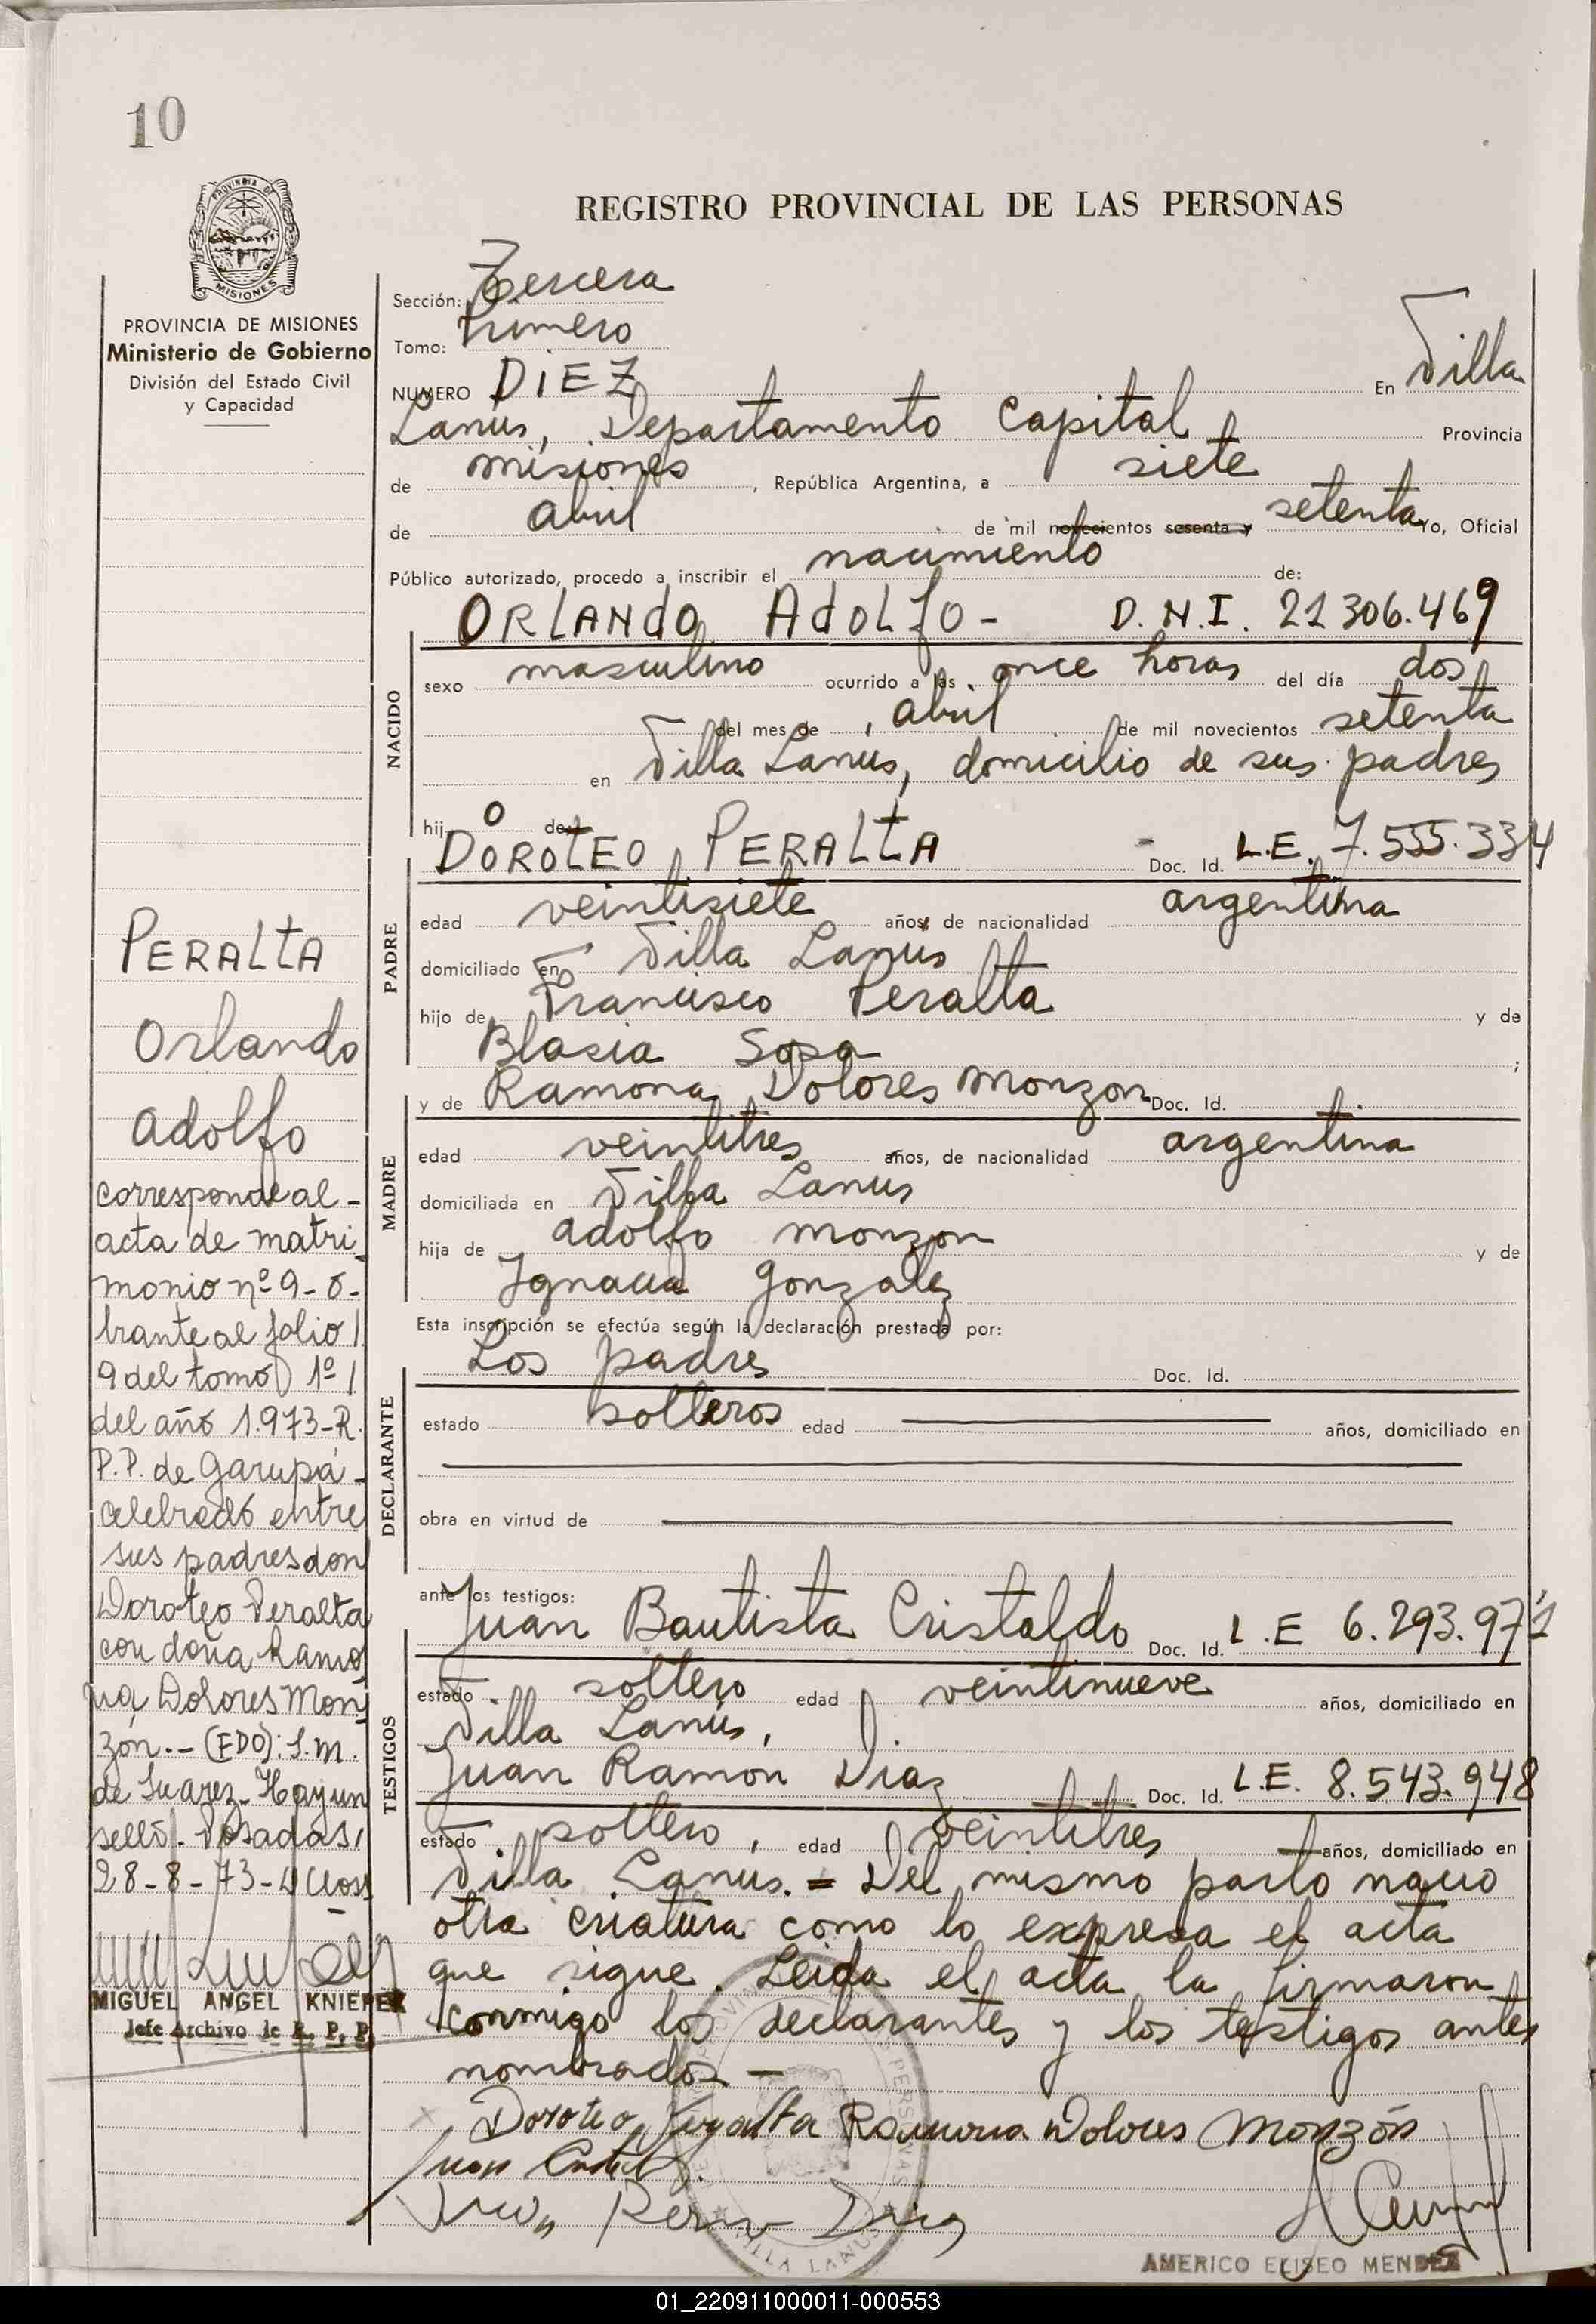 10
REGISTRO PROVINCIAL DE LAS PERSONAS
PROVINCIA DE MISIONES
PROVINCIA DE MISIONES
Ministerio de Gobierno
División del Estado Civil
y Capacidad
Sección: Tercera
Tomo: Primero
NUMERO DIEZ En Villa
Lanús, Departamento Capital Provincia
de misiones, República Argentina, a siete
de abril de mil novecientos sesenta y setenta Yo, Oficial
Público autorizado, procedo a inscribir el nacimiento de:
ORLANDO ADOLFO - D.N.I. 21306.469
NACIDO
sexo masculino ocurrido a las once horas del día dos
del mes de abril de mil novecientos setenta
en Villa Lanús, domicilio de sus padres
hijo de:
DOROTEO PERALTA - Doc. Id. L.E. 7.555.334
PADRE
edad veintisiete años de nacionalidad argentina
domiciliado en Villa Lanus
hijo de Francisco Peralta y de
Blasia Sosa ;
y de Ramona Dolores Monzon Doc. Id.
MADRE
edad veintitres años, de nacionalidad argentina
domiciliada en Villa Lanus
hija de adolfo monzon y de
Ignacia Gonzalez
Esta inscripción se efectúa según la declaración prestada por:
Los padres Doc. Id.
DECLARANTE
estado solteros edad años, domiciliado en
obra en virtud de
ante los testigos:
Juan Bautista Cristaldo Doc. Id. L.E 6.293.971
TESTIGOS
estado soltero edad veintinueve años, domiciliado en
Villa Lanús,
Juan Ramón Diaz Doc. Id. L.E. 8.543.948
estado soltero, edad veintitres años, domiciliado en
Villa Lanús. = Del mismo parto nacio
otra criatura como lo expresa el acta
que sigue. Leida el acta la firmaron
conmigo los declarantes y los testigos antes
nombrados -
Doroteo Peralta Ramona Dolores Monzón
Juan
Juan Ramon Diaz
AMERICO ELISEO MENDEZ
VILLA LANUS
PERALTA
Orlando
adolfo
corresponde al -
acta de matri
monio nº 9 - o -
brante al folio /
9 del tomo 1º /
del año 1.973 - R.
P.P. de Garupá -
celebrado entre
sus padres don
Doroteo Peralta
con doña Ramo
na Dolores Mon
zón. - (EDO): S.M.
de Suarez - Hay un
sello. Posadas,
28-8-73 -
MIGUEL ANGEL KNIEPER
Jefe Archivo de R. P. P.
01_220911000011-000553